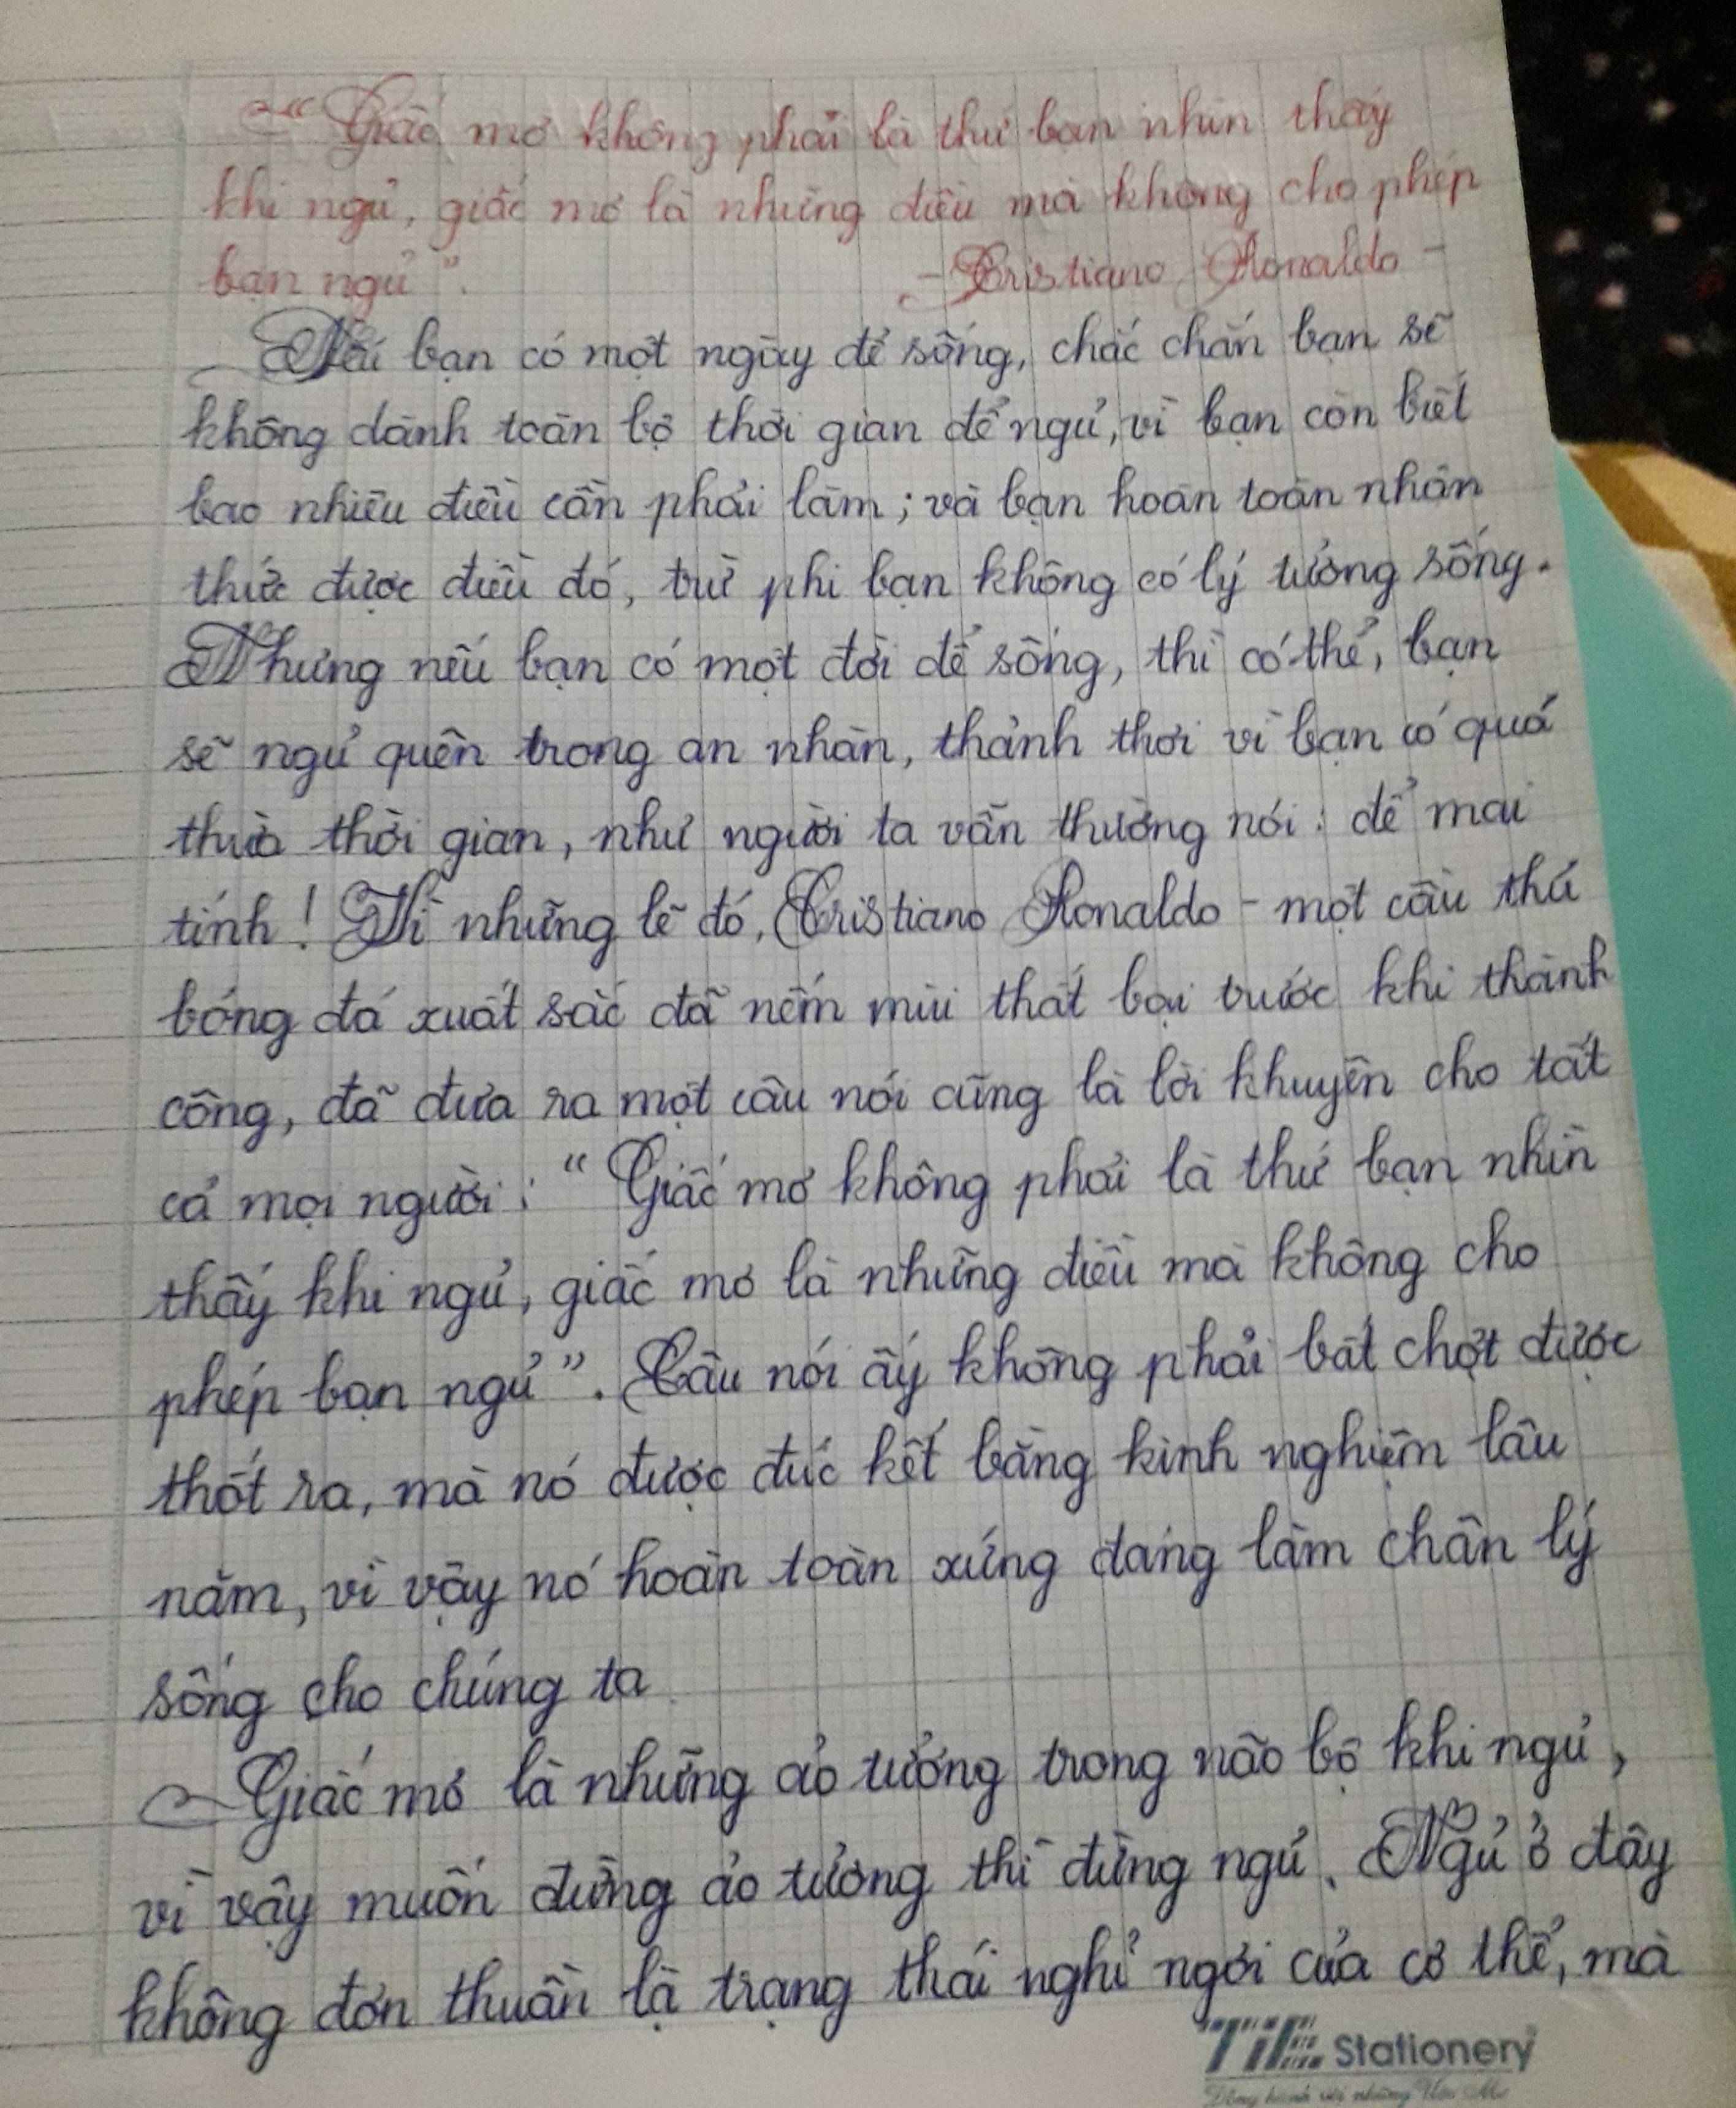 "Giấc mơ không phải là thứ bạn nhìn thấy
khi ngủ, giấc mơ là những điều mà không cho phép
bạn ngủ".
- Cristiano Ronaldo -
Nếu bạn có một ngày để sống, chắc chắn bạn sẽ
không dành toàn bộ thời gian để ngủ, vì bạn còn biết
bao nhiêu điều cần phải làm; và bạn hoàn toàn nhân
thức được điều đó, trừ phi bạn không có lý tưởng sống.
Nhưng nếu bạn có một đời để sống, thì có thể, bạn
sẽ ngủ quên trong an nhàn, thảnh thơi vì bạn có quá
thừa thời gian, như người ta vẫn thường nói: để mai
tính! Vì những lẽ đó, Cristiano Ronaldo - một cầu thủ
bóng đá xuất sắc đã nếm mùi thất bại trước khi thành
công, đã đưa ra một câu nói cũng là lời khuyên cho tất
cả mọi người: "Giấc mơ không phải là thứ bạn nhìn
thấy khi ngủ, giấc mơ là những điều mà không cho
phép bạn ngủ". Câu nói ấy không phải bất chợt được
thốt ra, mà nó được đúc kết bằng kinh nghiệm lâu
năm, vì vậy nó hoàn toàn xứng đáng làm chân lý
sống cho chúng ta
Giấc mơ là những ảo tưởng trong não bộ khi ngủ,
vì vậy muốn đừng ảo tưởng thì đừng ngủ. Ngủ ở đây
không đơn thuần là trạng thái nghỉ ngơi của cơ thể, mà
TiE Stationery